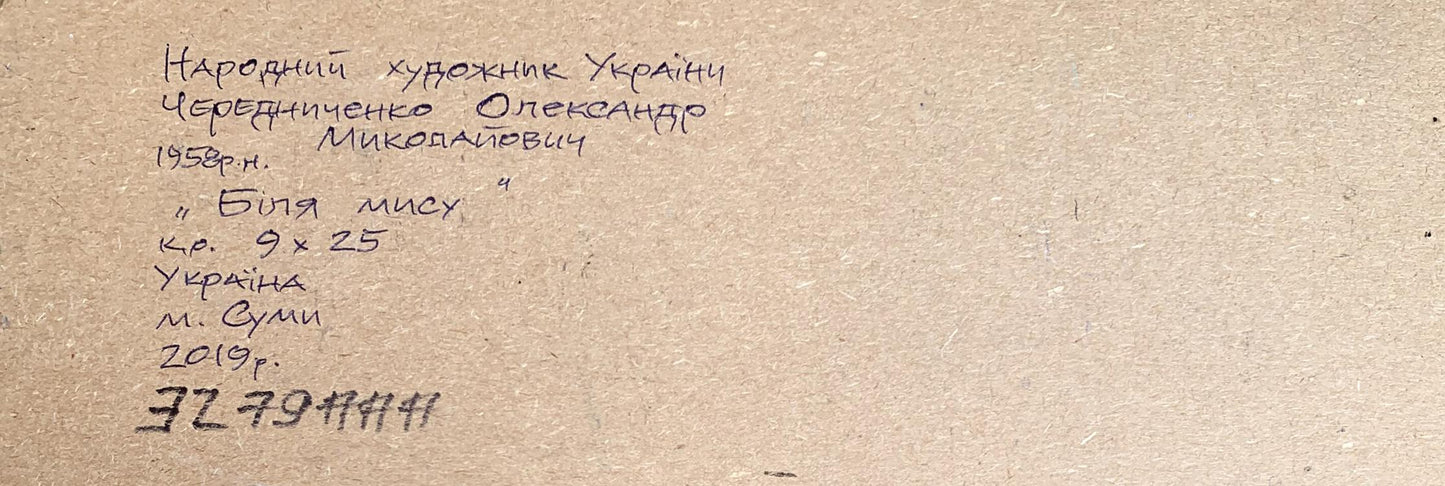 Народний художник України
Чередниченко Олександр
Миколайович
1958р.н.
„ Біля мису "
к.о. 9 х 25
Україна
м. Суми
2019р.